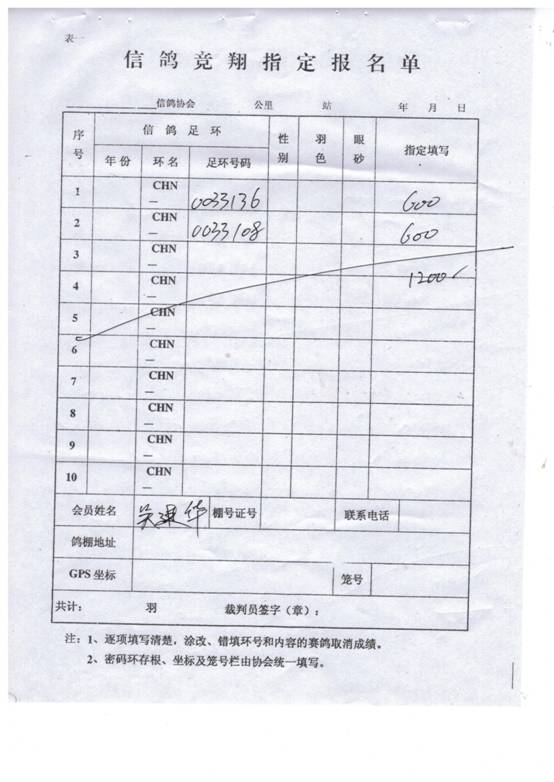 表一
信鸽竞翔指定报名单
信鸽协会 公里 站 年 月 日
序号 信鸽足环 性别 羽色 眼砂 指定填写
年份 环名 足环号码
1 CHN— 0033136 600
2 CHN— 0033108 600
3 CHN—
4 CHN— 1200
5 CHN—
6 CHN—
7 CHN—
8 CHN—
9 CHN—
10 CHN—
会员姓名 吴华 棚号证号 联系电话
鸽棚地址
GPS坐标 笼号
共计: 羽 裁判员签字(章):
注:1、逐项填写清楚,涂改、错填环号和内容的赛鸽取消成绩。
2、密码环存根、坐标及笼号栏由协会统一填写。